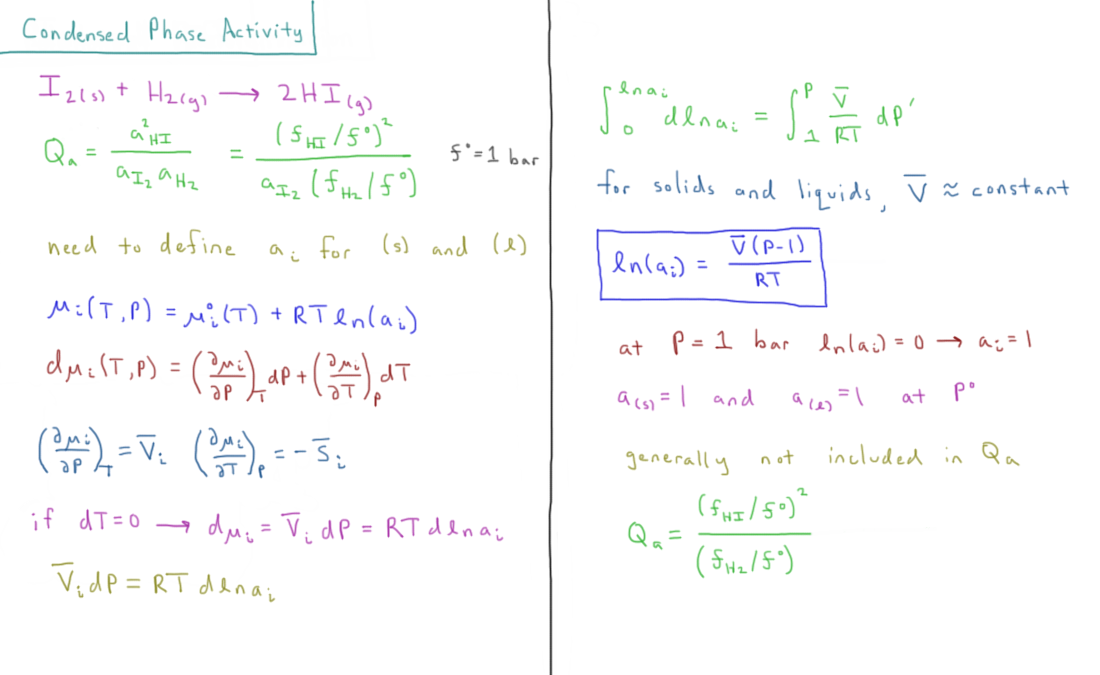 Condensed Phase Activity
I₂(s) + H₂(g) ⟶ 2HI(g)
Qₐ = a²_HI / (a_I₂ a_H₂) = (f_HI/f°)² / (a_I₂ (f_H₂/f°))   f° = 1 bar
need to define aᵢ for (s) and (l)
μᵢ(T,P) = μᵢ°(T) + RT ln(aᵢ)
dμᵢ(T,P) = (∂μᵢ/∂P)_T dP + (∂μᵢ/∂T)_P dT
(∂μᵢ/∂P)_T = V̅ᵢ   (∂μᵢ/∂T)_P = -S̅ᵢ
if dT=0 ⟶ dμᵢ = V̅ᵢ dP = RT dlnaᵢ
V̅ᵢ dP = RT dlnaᵢ
∫₀^{lnaᵢ} dlnaᵢ = ∫₁^P V̅/RT dP′
for solids and liquids, V̅ ≈ constant
ln(aᵢ) = V̅(P-1)/RT
at P = 1 bar ln(aᵢ) = 0 → aᵢ = 1
a(s) = 1 and a(l) = 1 at P°
generally not included in Qₐ
Qₐ = (f_HI/f°)² / (f_H₂/f°)